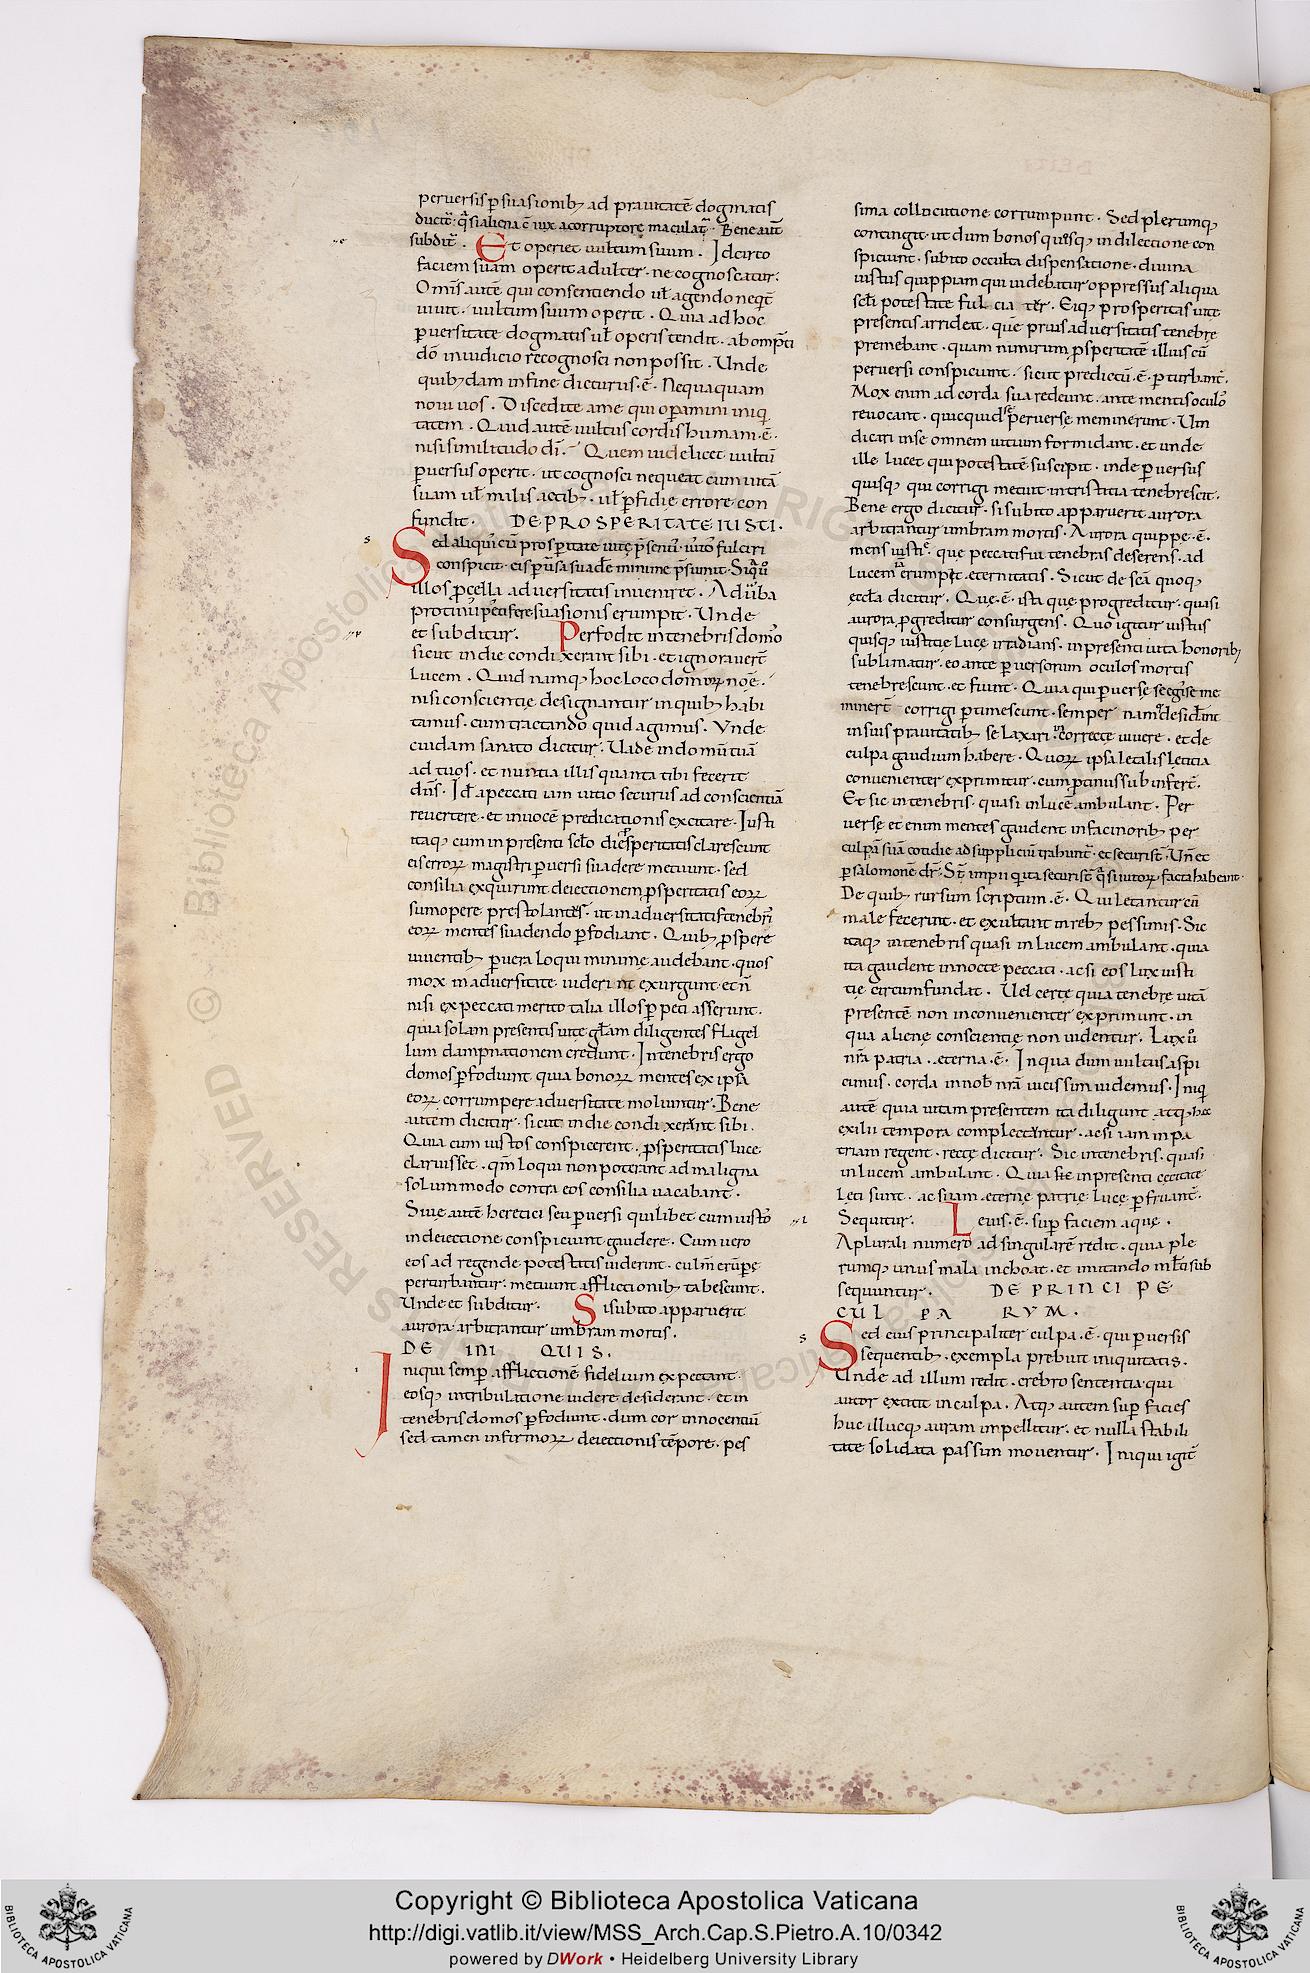 peruersis p̄suasionibȝ ad prauitatē dogmatis
ductꝰ· q̄si aliena ē uix a corruptore maculat̄· Bene aut̄
subdit̄· Et operiet uultum suum· Idcirco
faciem suam operit adulter· ne cognoscatur·
Om̄s autē qui consentiendo ul̄ agendo neqt̄
uiuit· uultum suum operit· Quia ad hoc
p̄uersitate dogmatis ul̄ operis tendit· ab omp̄ti
dō in iudicio recognosci non possit· Unde
quibȝdam in fine dicturus ē· Nequaquam
noui uos· Discedite a me qui op̄amini iniqi
tatem· Quid autē uultus cordis humani ē·
nisi similitudo dī· Quem uidelicet uultū
p̄uersus operit· ut cognosci nequeat cum uitā
suam ul̄ malis actibȝ· ul̄ p̄fidię errore con
fundit· DE PROSPERITATE IUSTI·
Sed
conspicit·
illos p̄cella aduersitatis inueniret·
suasionis erumpit· Unde
et subditur· Perfodit in tenebris domos
sicut in die condixerant sibi· et ignorauert̄
lucem· Quid namqȝ hoc loco domorꝝ noīe·
nisi conscientię designantur in quibȝ habi
tamus· cum tractando quid agimus· Vnde
cuidam sanato dicitur· Uade in domū tuā
ad tuos· et nuntia illis quanta tibi fecerit
dn̄s· Id̄ a peccati iam uitio securus ad conscientiā
reuertere· et in uocē predicationis excitare· Iusti
itaqȝ cum in presenti sclo die p̄speritatis clarescunt
eis errorꝝ magistri p̄uersi suadere metuunt· sed
consilia exquirunt deiectionem p̄speritatis eorꝝ
summopere prestolantes· ut in aduersitatis tenebris
eorꝝ mentes suadendo p̄fodiant· Quibȝ p̄spere
uiuentibȝ p̄uersa loqui minime audebant· quos
mox in aduersitate uiderint exurgunt· et n̄
nisi ex peccati merito talia illos p̄peti asserunt·
quia solam presentis uitę gl̄am diligentes flagel
lum dampnationem credunt· In tenebris ergo
domos p̄fodiunt quia bonorꝝ mentes ex ipsa
eorꝝ corrumpere aduersitate moliuntur· Bene
autem dicitur· sicut in die condixerant sibi·
Quia cum iustos conspicerent· p̄speritatis luce
claruisset· qm̄ loqui non poterant ad maligna
solummodo contra eos consilia uacabant·
Siue autē heretici seu p̄uersi quilibet· cum iustos
in deiectione conspiciunt gaudere· Cum uero
eos ad regende potestatis uiderint· culm̄ erūpe
perturbantur· metuunt afflictionibȝ tabescunt·
Unde et subditur· Si subito apparuerit
aurora· arbitrantur umbram mortis·
DE INIQUIS·
Iniqui semp̄ afflictionē fidelium expectant·
eosqȝ in tribulatione uidere desiderant· et in
tenebris domos p̄fodiunt· dum cor innocentū
sed tamen infirmorꝝ deiectionis tēpore· pes
sima collocutione corrumpunt· Sed plerumqȝ
contingit· ut dum bonos quosqȝ in deiectione con
spiciunt· subito occulta dispensatione· diuina
iustus quippiam qui uidebatur oppressus aliqua
scl̄i potestate fulciat̄r· Eiqȝ prosperitas uitę
presentis arrideat· quē prius aduersitatis tenebrę
premebant· quam nimirum p̄speritatē illius cū
peruersi conspiciunt· sicut predictū ē· p̄turbant̄·
Mox enim ad corda sua redeunt· ante mentis oculos
reuocant· quicquid se peruerse meminerunt· Uin
dicari in se omnem uitium formidant· et unde
ille lucet qui potestatē suscipit· inde p̄uersus
quisqȝ qui corrigi metuit in tristitia tenebrescit·
Bene ergo dicitur· si subito apparuerit aurora
arbitrantur umbram mortis· Aurora quippe ē·
mens iusti· que peccati sui tenebras deserens· ad
lucem erumpit eternitatis· Sicut de scā quoqȝ
ęccl̄a dicitur· Quę ē· ista quę progreditur· quasi
aurora p̄greditur consurgens· Quo igitur iustus
quisqȝ iustitię luce irradians· in presenti uita honoribȝ
sublimatur· eo ante p̄uersorum oculos mortis
tenebrescunt· et fiunt· Quia qui p̄uerse se egisse me
minert̄ corrigi p̄timescunt· semper namqȝ desid̄ant
in suis prauitatibȝ se laxari· incorrecte uiuere· et de
culpa gaudium habere· Quorꝝ ipsa letalis lętitia
conuenienter exprimitur· cum p̄tinus subinfert̄·
Et sic in tenebris· quasi in lucē ambulant· Per
uersę et enim mentes gaudent in facinoribȝ per
culpā suā cotidie ad supplicium trahunt̄· et securi st̄· Un̄ et
p̄ salomonē dr̄· St̄ impii qui ita securi st̄ q̄si iustorꝝ facta habeant·
De quibȝ rursum scriptum ē· Qui letantur cū
male fecerint· et exultant in rebȝ pessimis· Sic
itaqȝ in tenebris quasi in lucem ambulant· quia
ita gaudent in nocte peccati· ac si eos lux iusti
tię circumfundat· Uel certę quia tenebrę uitā
presentē non inconuenienter exprimunt· in
qua alienę conscientię non uidentur· Lux ū
nr̄a patria· eterna ē· In qua dum uultus aspi
cimus· corda in nob̄ nr̄a uicissim uidemus· Iniqi
autē quia uitam presentem ita diligunt atqȝ hoc
exilii tempora complectantur· ac si iam in pa
triam regent· recte dicitur· Sic in tenebris· quasi
in lucem ambulant· Quia sic in presenti cęcitate
lęti sunt· ac si iam eternę patrię luce p̄fruant̄·
Sequitur· Leuis ē· sup̄ faciem aquę·
A plurali numero ad singularē redit· quia ple
rumqȝ unus mala inchoat· et imitando mlt̄i sub
sequuntur· DE PRINCIPE
CULPARVM·
Sed eius principaliter culpa ē· qui p̄uersis
sequentibȝ· exempla prebuit iniquitatis·
Unde ad illum redit· crebro sententia· qui
autor extitit in culpa· Atqȝ autem sup̄ facies
huc illucqȝ auram impellitur· et nulla stabili
tate solidata passim mouentur· Iniqui igit̄
Copyright © Biblioteca Apostolica Vaticana
http://digi.vatlib.it/view/MSS_Arch.Cap.S.Pietro.A.10/0342
powered by DWork • Heidelberg University Library
BIBLIOTECA APOSTOLICA VATICANA
BIBLIOTECA APOSTOLICA VATICANA